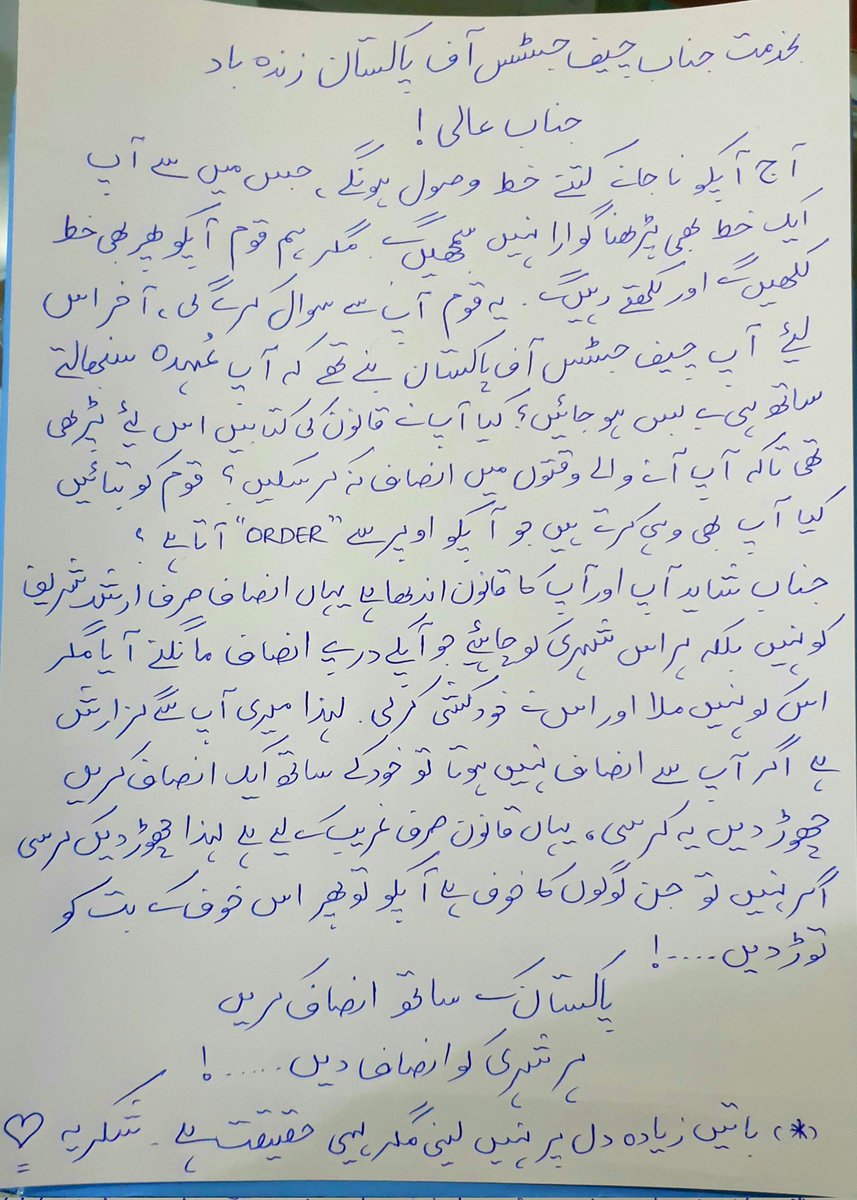 بخدمت جناب چیف جسٹس آف پاکستان زندہ باد
جناب عالی !
آج آپکو نا جانے کتنے خط وصول ہونگے، جس میں سے آپ
ایک خط بھی پڑھنا گوارا نہیں سمجھیں گے. مگر ہم قوم آپکو پھر بھی خط
لکھیں گے اور لکھتے رہیں گے. یہ قوم آپ سے سوال کرے گی، آخر اس
لیۓ آپ چیف جسٹس آف پاکستان بنے تھے کہ آپ عُہدہ سنبھالتے
ساتھ ہی بے بس ہو جائیں؟ کیا آپ نے قانون کی کتابیں اس لیۓ پڑھی
تھی تاکہ آپ آنے والے وقتوں میں انصاف نہ کر سکیں؟ قوم کو بتائیں
کیا آپ بھی وہی کرتے ہیں جو آپکو اوپر سے "ORDER" آتا ہے ؟
جناب شاید آپ اور آپ کا قانون اندھا ہے یہاں انصاف صرف ارشد شریف
کو نہیں بلکہ ہر اس شہری کو چاہیۓ جو آپکے در پے انصاف مانگنے آیا مگر
اس کو نہیں ملا اور اس نے خودکشی کر لی. لہذا میری آپ سے گزارش
ہے اگر آپ سے انصاف نہیں ہوتا تو خود کے ساتھ ایک انصاف کریں
چھوڑ دیں یہ کرسی، یہاں قانون صرف غریب کے لیے ہے لہذا چھوڑ دیں کرسی
اگر نہیں تو جن لوگوں کا خوف ہے آپکو تو پھر اس خوف کے بت کو
توڑ دیں.....!
پاکستان کے ساتھ انصاف کریں
ہر شہری کو انصاف دیں......!
(*) باتیں زیادہ دل پر نہیں لینی مگر یہی حقیقت ہے. شکریہ ♡